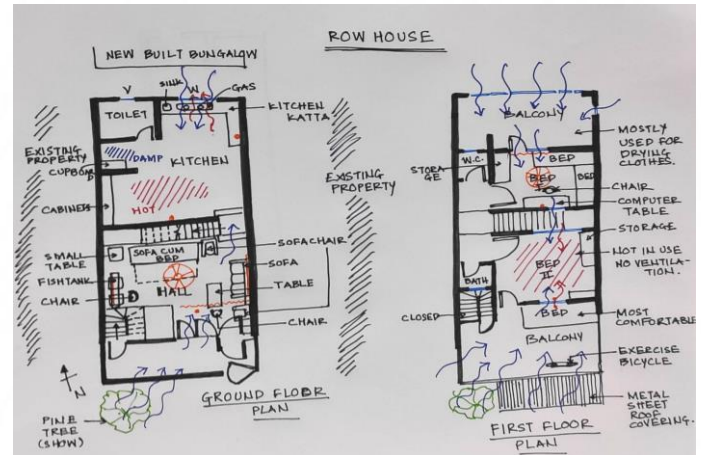 ROW HOUSE
NEW BUILT BUNGALOW
V
SINK
W
GAS
TOILET
KITCHEN
KATTA
EXISTING
PROPERTY
CUPBOAR
D
DAMP
KITCHEN
EXISTING
PROPERTY
CABINET
HOT
SMALL
TABLE
SOFA CUM
BED
SOFA CHAIR
FISHTANK
SOFA
CHAIR
HALL
TABLE
CHAIR
N
PINE
TREE
(SHOW)
GROUND FLOOR
PLAN
BALCONY
MOSTLY
USED FOR
DRYING
CLOTHES.
STORA
GE
W.C.
BED
BED
BED
CHAIR
COMPUTER
TABLE
STORAGE
NOT IN USE
NO VENTILA-
TION.
BED
II
BATH
CLOSED
BED
MOST
COMFORTABLE
BALCONY
EXERCISE
BICYCLE
METAL
SHEET
ROOF
COVERING.
FIRST FLOOR
PLAN